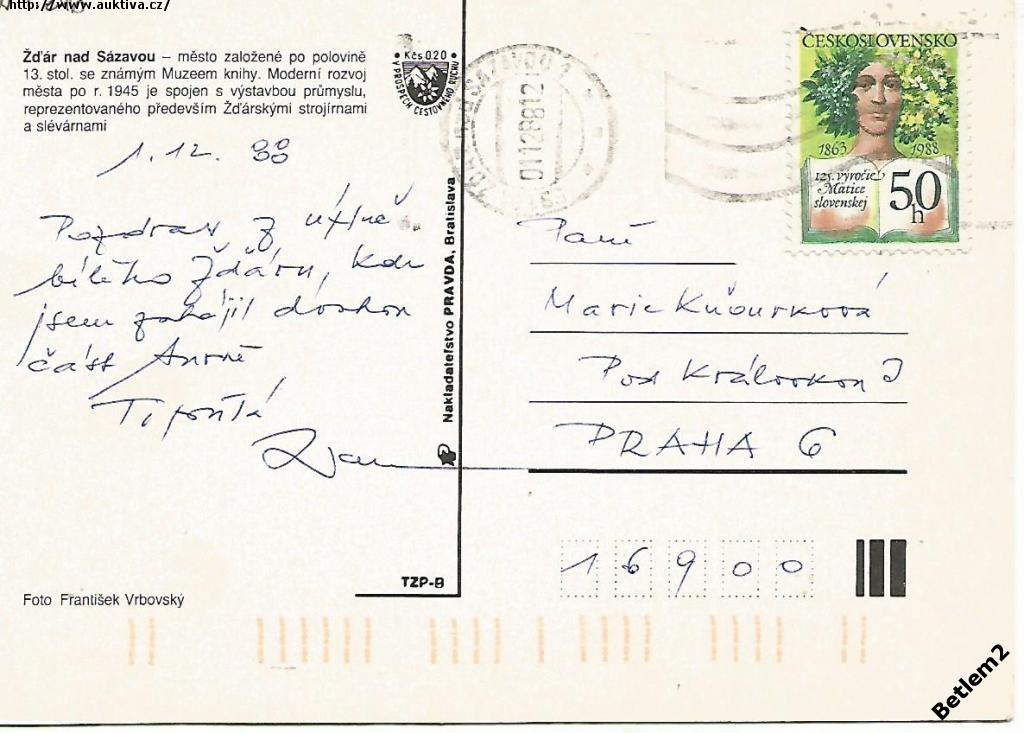 http://www.auktiva.cz/
Žďár nad Sázavou – město založené po polovině
13. stol. se známým Muzeem knihy. Moderní rozvoj
města po r. 1945 je spojen s výstavbou průmyslu,
reprezentovaného především Žďárskými strojírnami
a slévárnami
• Kčs 020 •
V PROSPĚCH CESTOVNÍHO RUCHU
01128812
ČESKOSLOVENSKO
1863 1988
125. výročie
Matice
slovenskej
50
h
1. 12. 88
Pozdrav z úplně
bílého Žďáru, kde
jsem zahájil
část
Nakladateľstvo PRAVDA, Bratislava
Paní
Marie
Pod Královkou
PRAHA 6
16900
TZP-B
Foto František Vrbovský
Betlem2